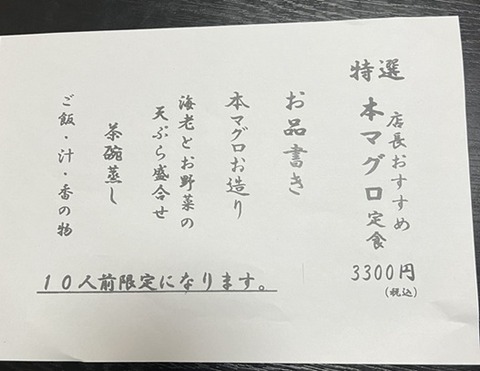 特選
店長おすすめ
本マグロ定食
3300円
(税込)
お品書き
本マグロお造り
海老とお野菜の
天ぷら盛合せ
茶碗蒸し
ご飯・汁・香の物
10人前限定になります。